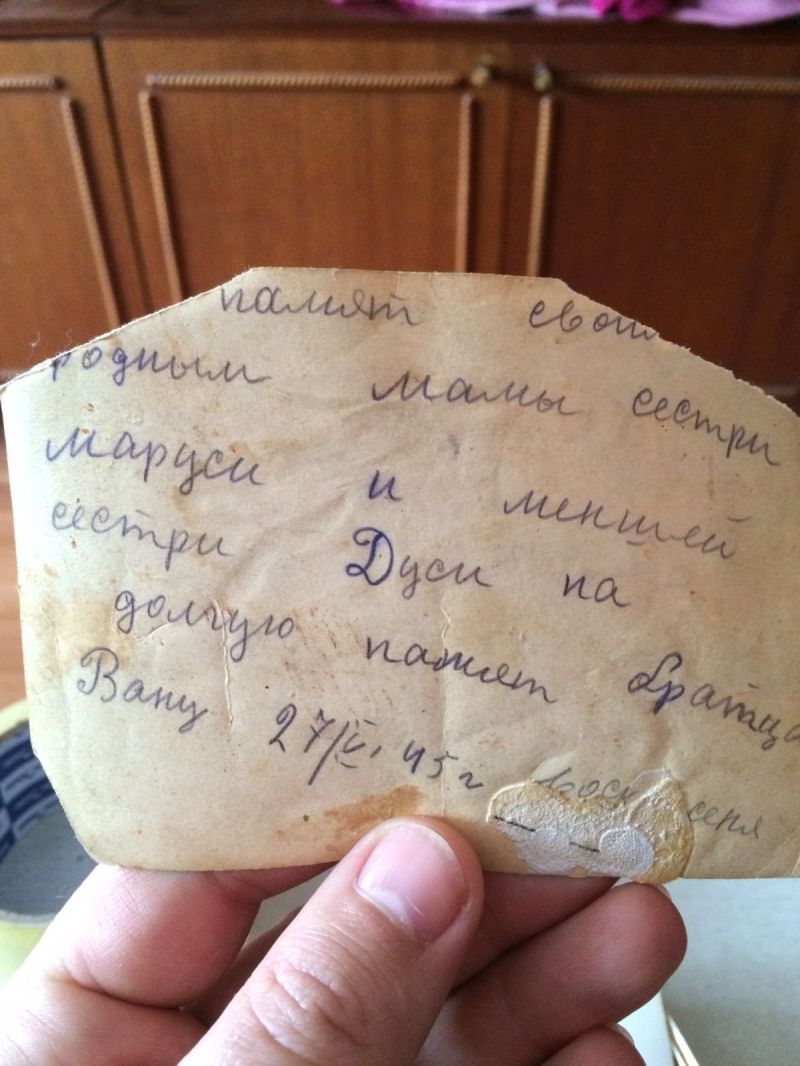 памят свои
родным мамы сестри
маруси и меншей
сестри Дуси на
долгую памят братца
Вану 27/V. 45 г